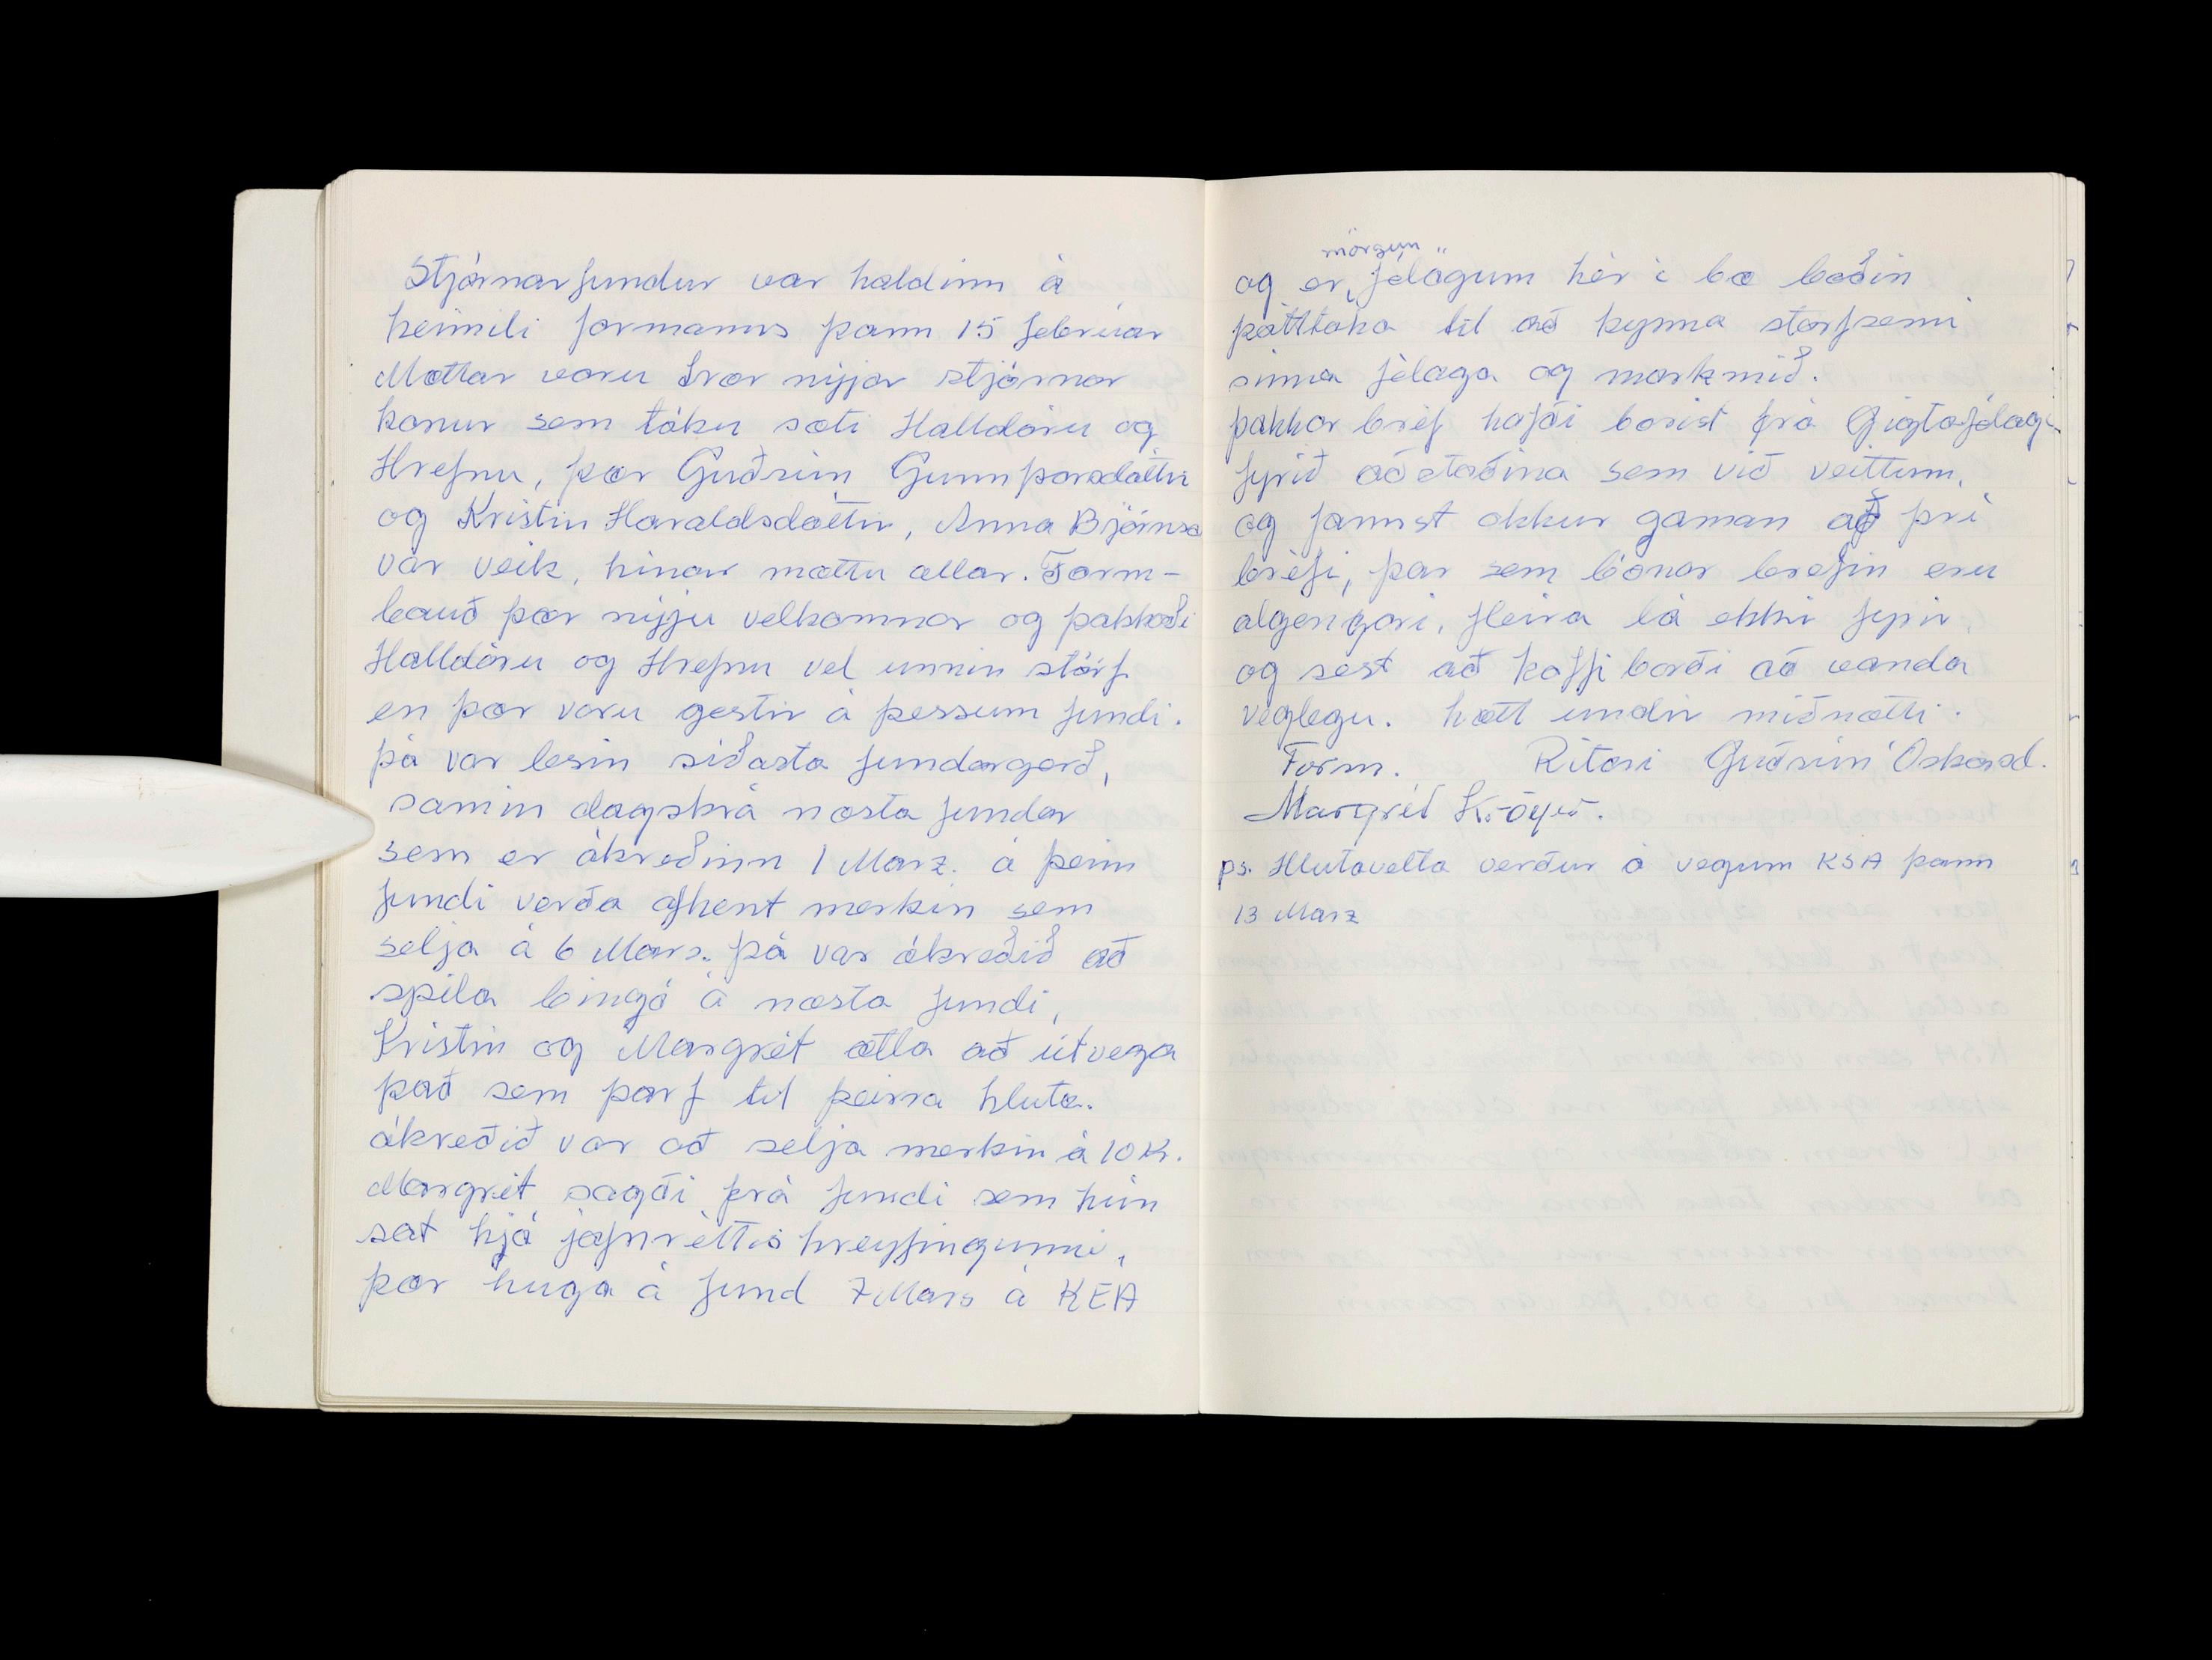 Stjórnarfundur var haldinn á
heimili formanns þann 15 febrúar
Mættar voru tvær nýjar stjórnar
konur sem tóku sæti Halldóru og
Hrefnu, þær Guðrún Gunnþórsdóttir
og Kristín Haraldsdóttir, Anna Björnsd
var veik, hinar mættu allar. Form-
bauð þær nýju velkomnar og þakkaði
Halldóru og Hrefnu vel unnin störf
en þær voru gestir á þessum fundi.
þá var lesin síðasta fundargerð,
samin dagskrá næsta fundar
sem er ákveðinn 1 Marz. á þeim
fundi verða afhent merkin sem
selja á 6 Mars. þá var ákveðið að
spila bingó á næsta fundi,
Kristín og Margrét ætla að útvega
það sem þarf til þeirra hluta.
ákveðið var að selja merkin á 10 Kr.
Margrét sagði frá fundi sem hún
sat hjá jafnréttis hreyfingunni,
þær huga á fund 7 Mars á KEA
mörgum „
og er félögum hér í bæ boðin
þátttaka til að kynna starfsemi
sinna félaga og markmið.
þakkar bréf hafði borist frá Gigtafélagi
fyrið aðstoðina sem við veittum,
og fannst okkur gaman að þvi
bréfi, þar sem bónar bréfin eru
algengari, fleira lá ekki fyrir
og sest að kaffi borði að vanda
veglegu. hætt undir miðnætti.
Form. Ritari Guðrún Óskarsd.
Margrét Kröyer.
ps. Hlutavelta verður á vegum KSA þann
13 Marz